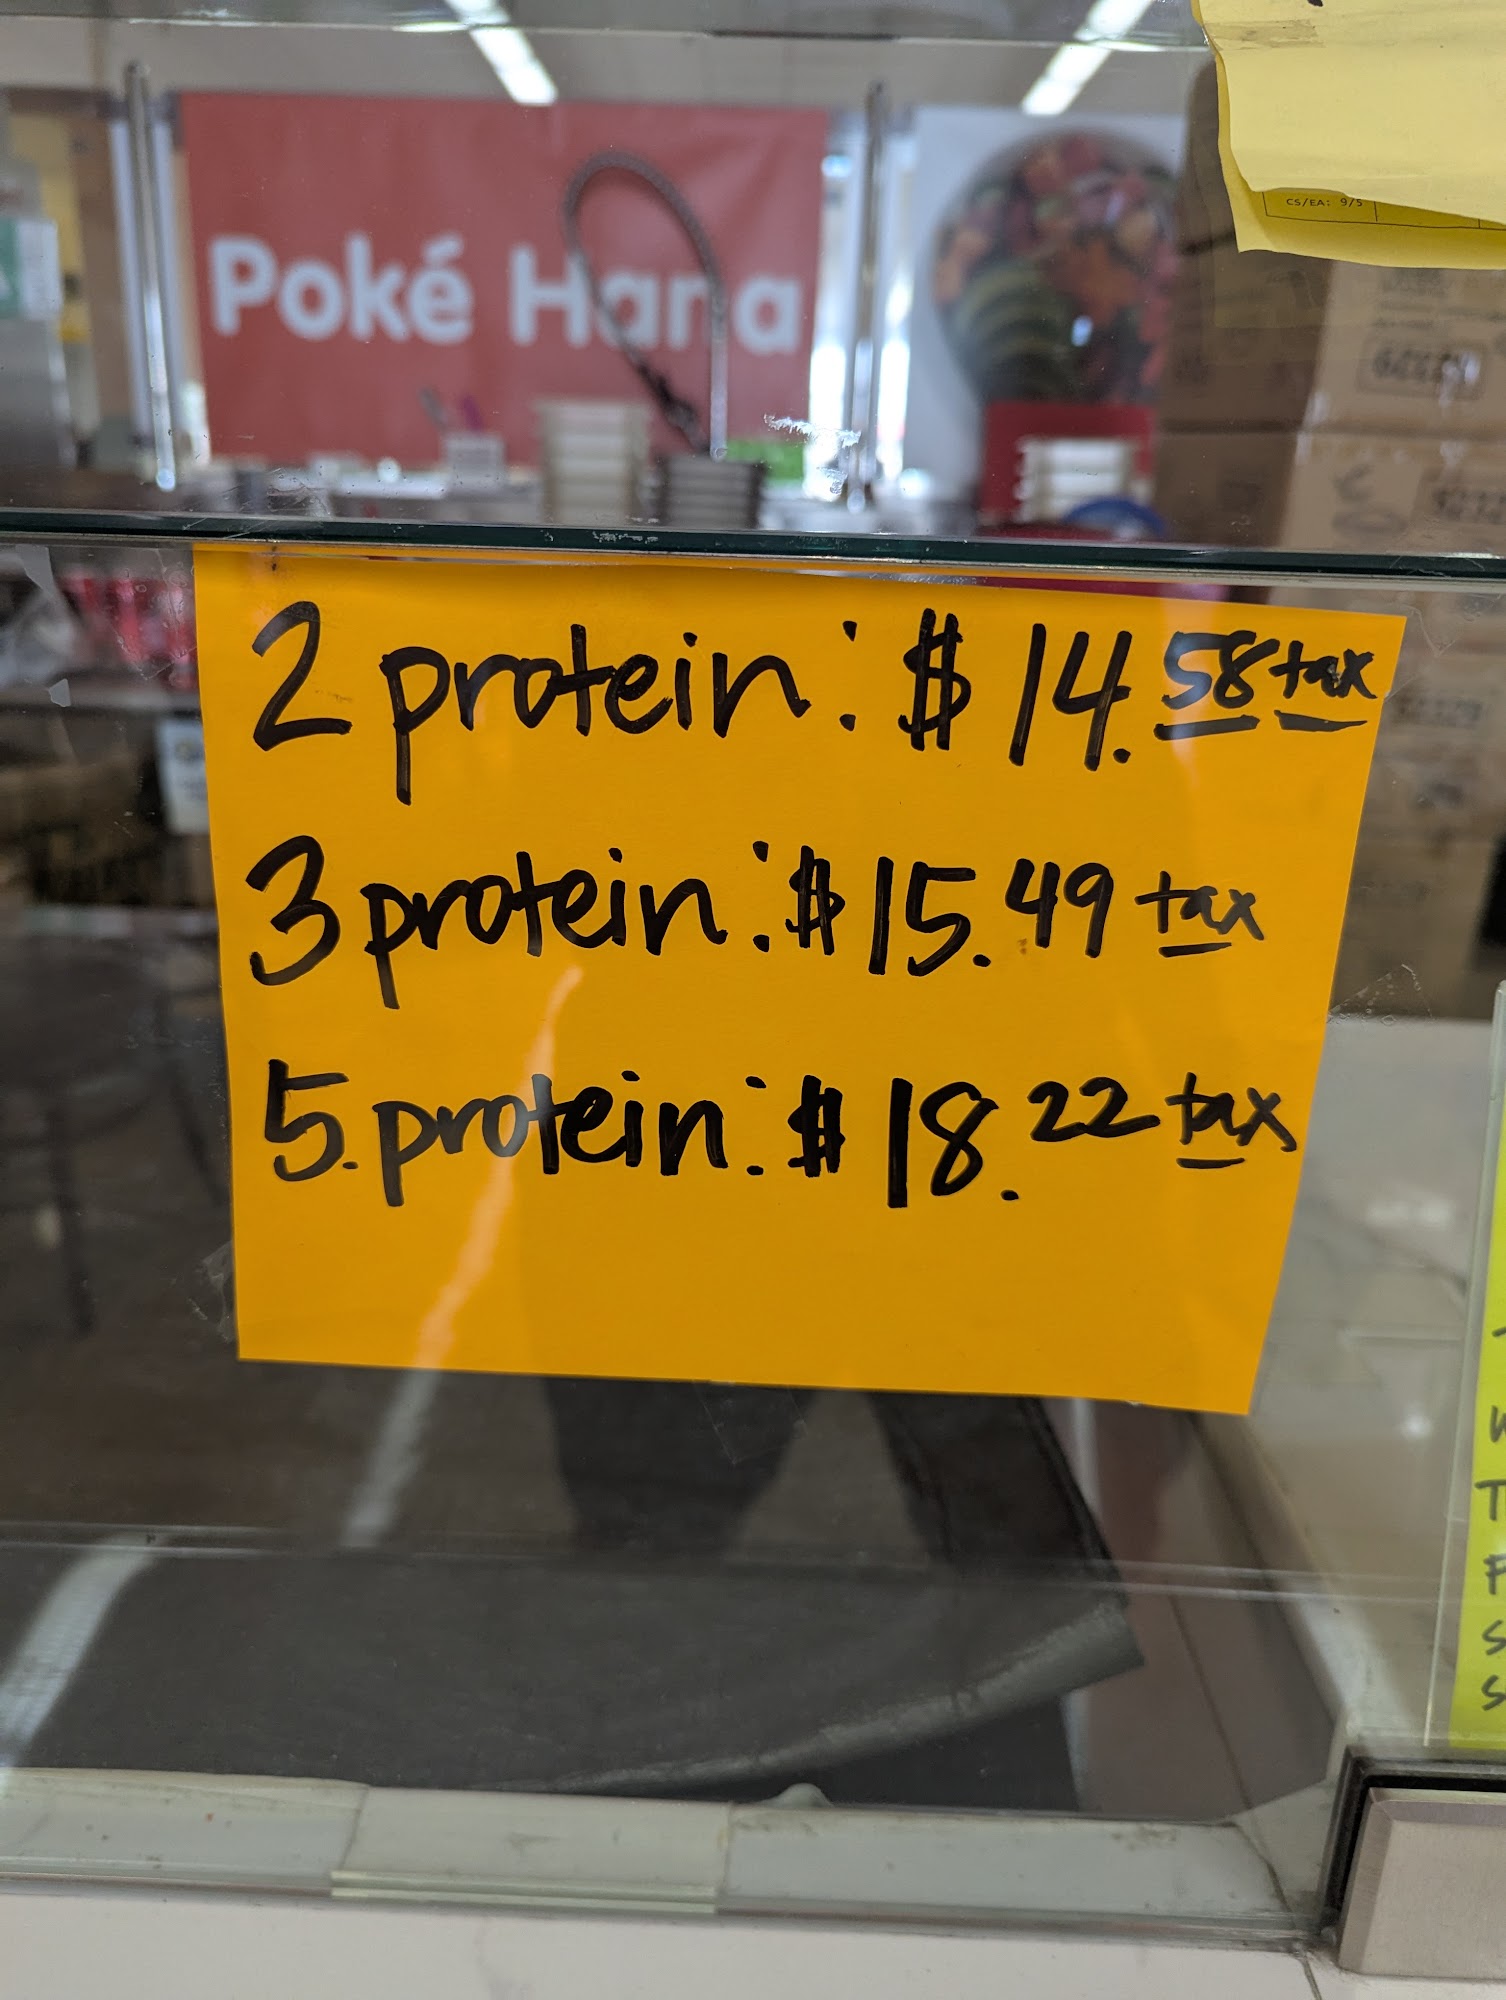 CS/EA: 9/5
Poké Hana
2 protein: $14.58 tax
3 protein: $15.49 tax
5. protein: $18.22 tax